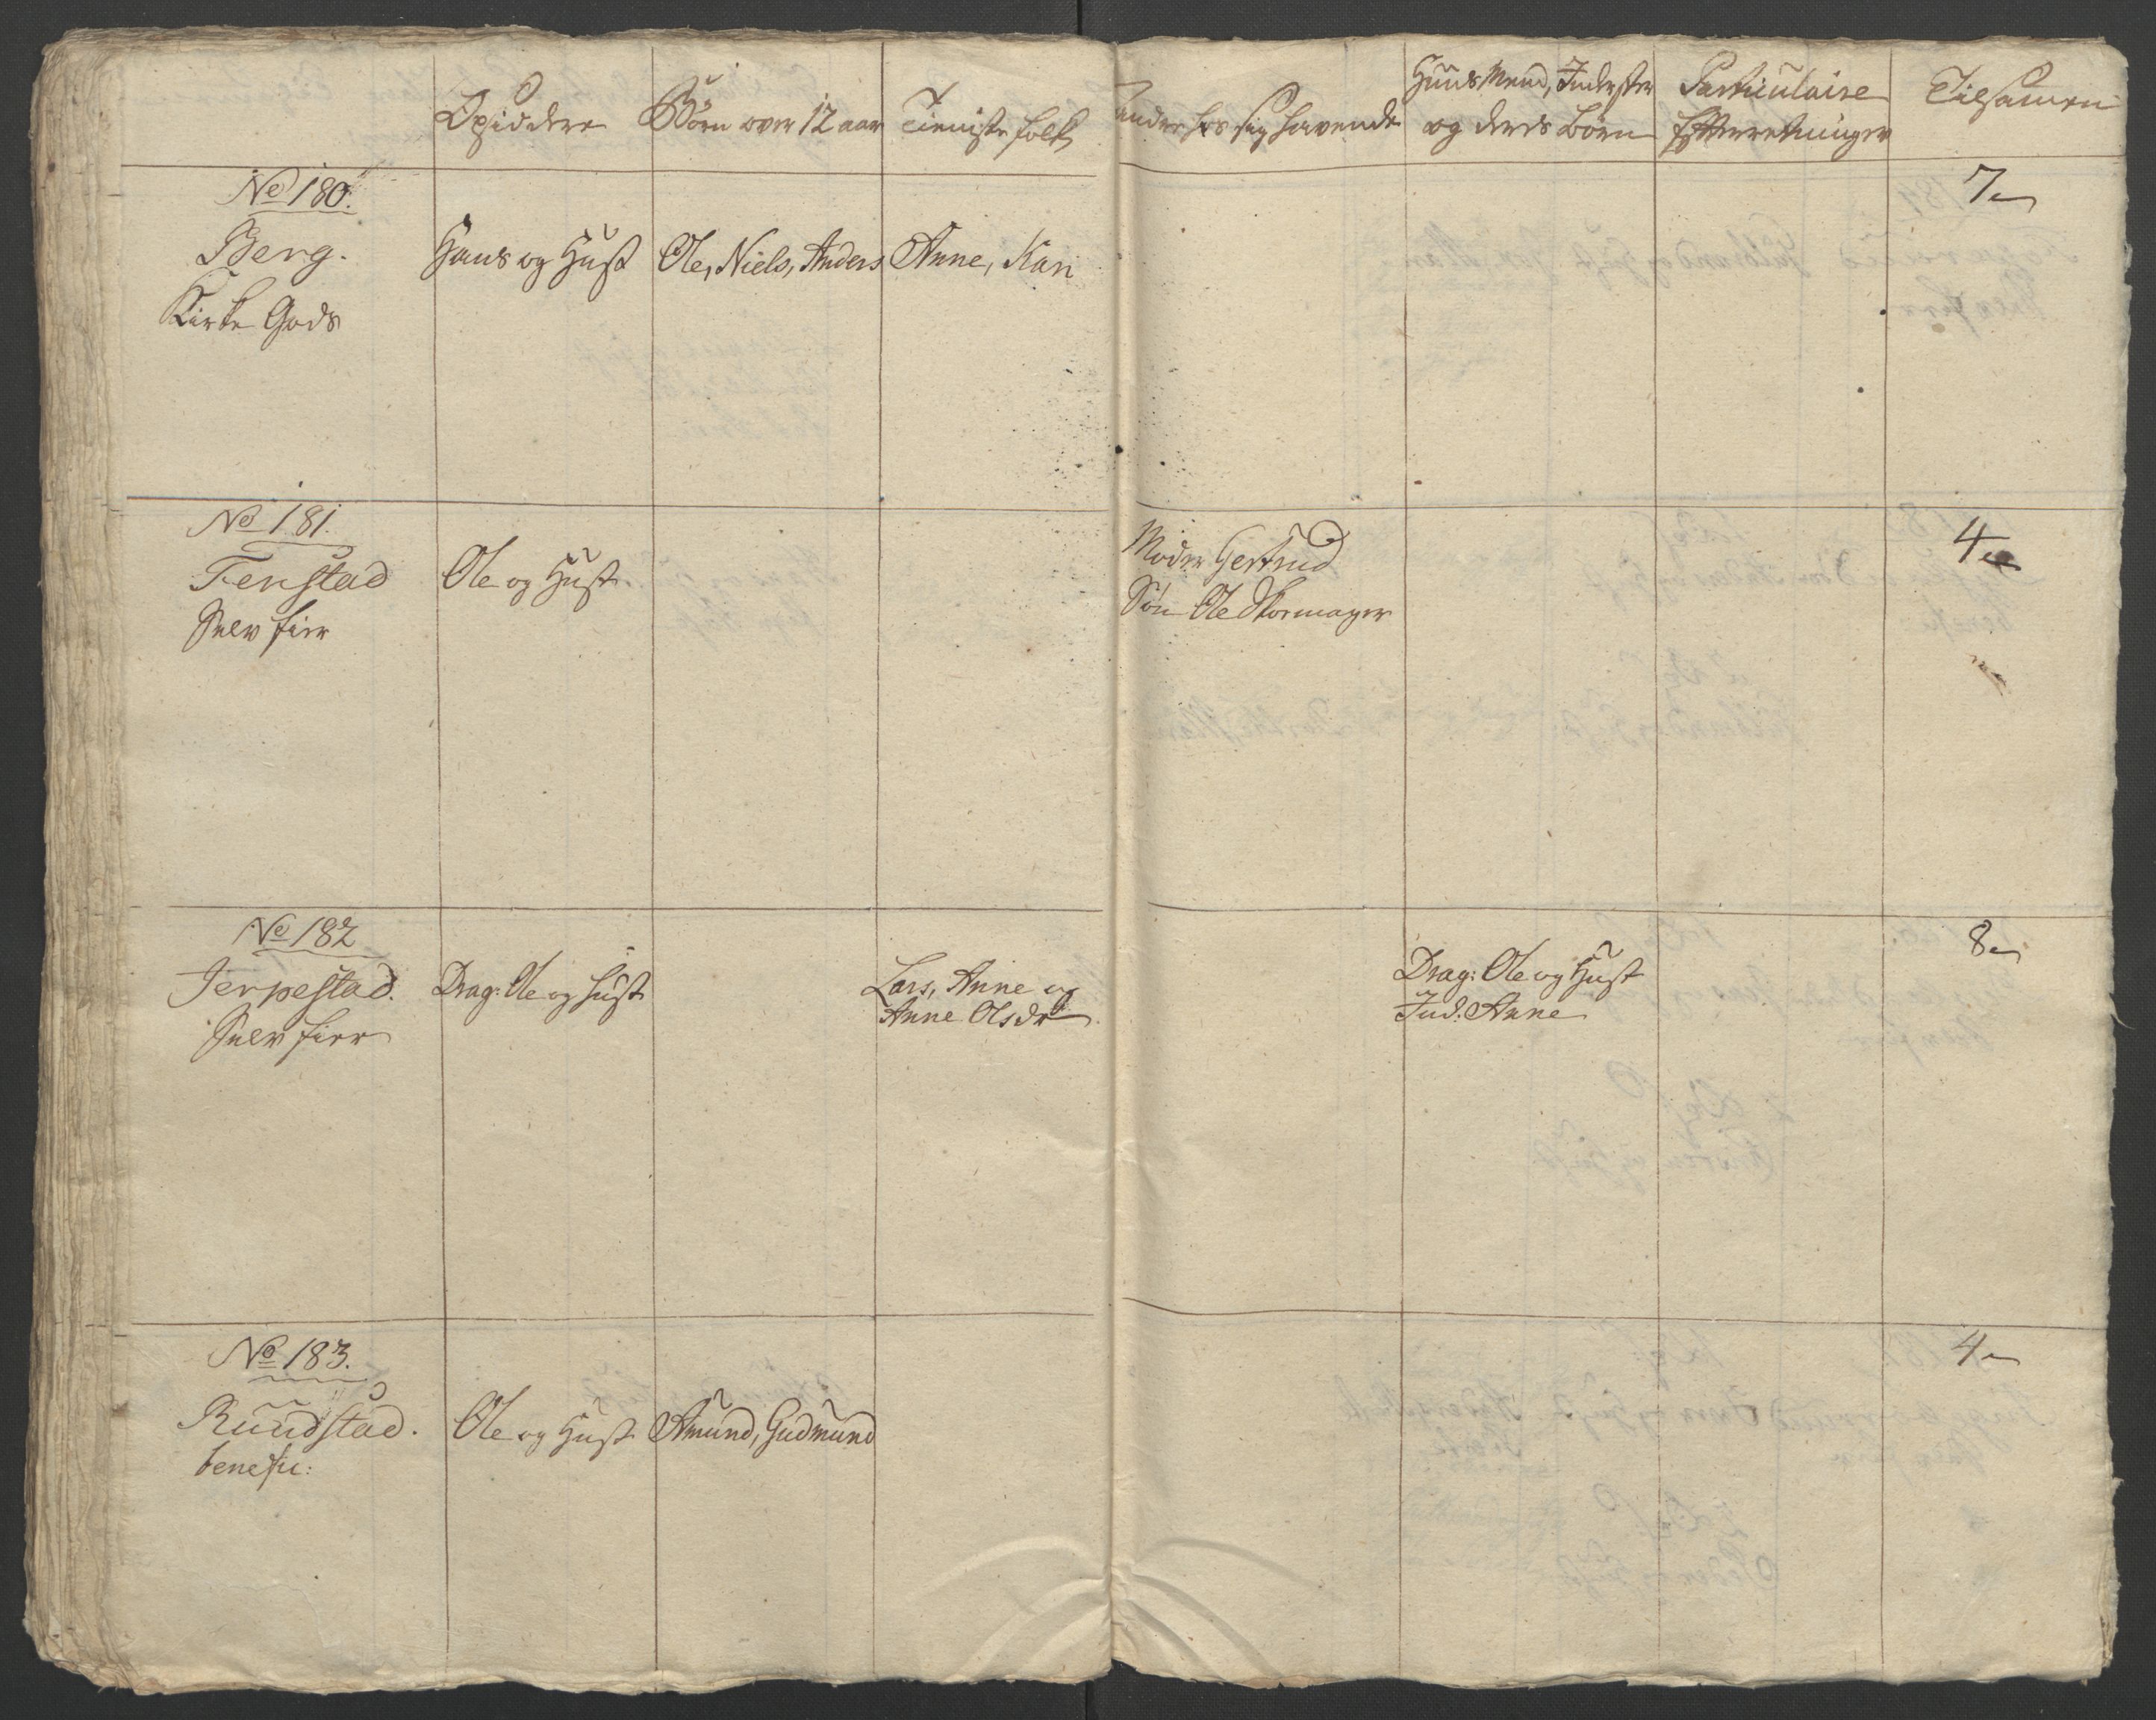 Opsiddere
Börn over 12 aar
Tieniste folk
andre hos sig havende
Huus Mend, Inderster
og deres Börn
Particulaire
Efterretninger
Tilsamen
No 180.
Berg.
Kirke Gods
Hans og Hust
Ole, Niels, Anders
Anne, Kari
7
No 181.
Fenstad
Selv Eier
Ole og Hust
Moder Gertrud
Sön Ole Skomager
4
No 182
Jerpestad.
Selv Eier
Drag: Ole og Hust
Lars, Anne og
Anne Olsdr
Drag: Ole og Hust
Ind: Anne
8
No 183.
Ruudstad.
benefic:
Ole og Hust
Amund, Gudmund
4